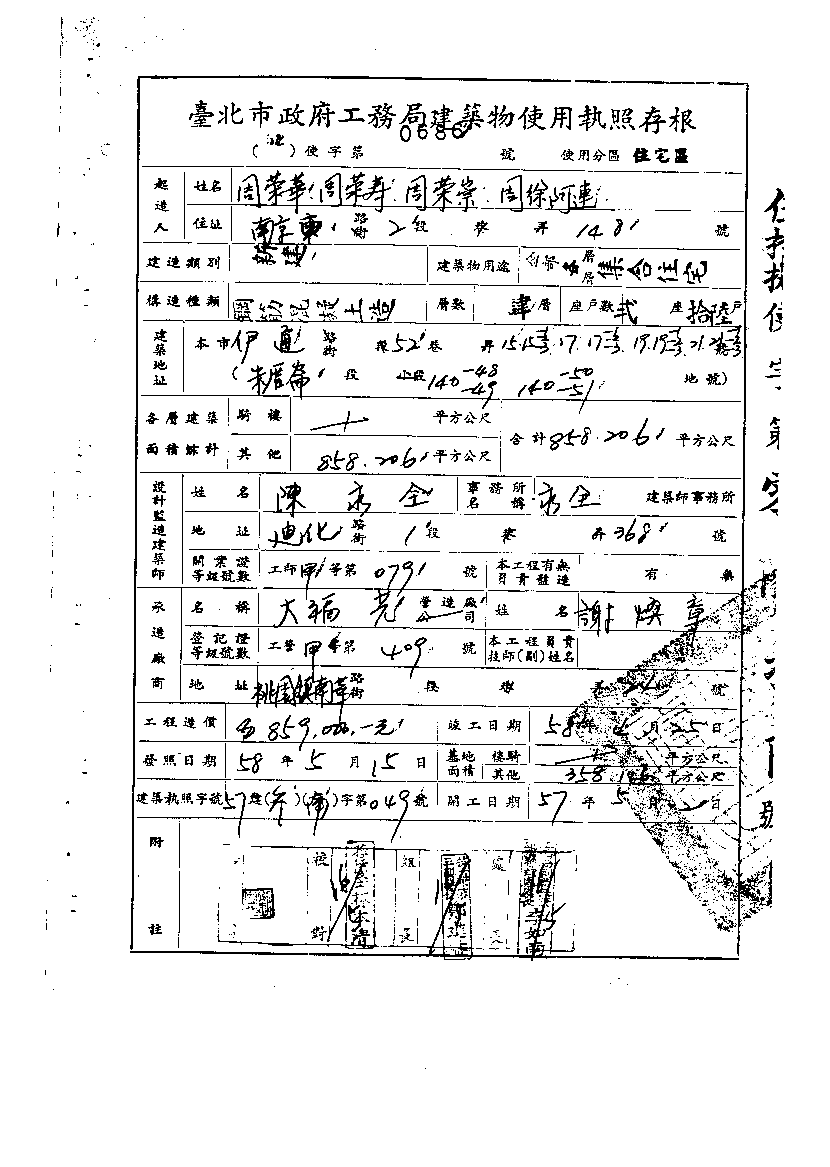 臺北市政府工務局建築物使用執照存根
0686
( ) 使字第 號 使用分區 住宅區
起造人 姓名 周榮華 周榮寿 周荣崇 周徐阿連
住址 南京東 路街 2 段 巷 弄 148 號
建造類別 新建 建築物用途 各層 集合住宅
構造種類 鋼筋混凝土造 層數 肆層 座戶數 弍 座 拾陸戶
建築地址 本市 伊通 路街 段 52 巷 弄
(朱厝崙 段 小段 140 -48 -49 140 -50 -51 地號)
各層建築面積餘計 騎樓 平方公尺 合計 858.206 平方公尺
其他 858.206 平方公尺
設計監造建築師 姓名 陳永全 事務所名稱 永全 建築師事務所
地址 迪化 路街 1 段 巷 弄 368 號
開業證等級號數 工師 甲 等第 0791 號 本工程有無負責監造 有 無
承造廠商 名稱 大福 營造廠公司 姓名 謝煥章
登記證等級號數 工營 甲 等第 409 號 本工程負責技師(副)姓名
地址 桃園鎮南華 路街 段 巷 弄 號
工程造價 859,000.-元 竣工日期 58 年 月 25 日
發照日期 58 年 5 月 15 日 基地面積 樓騎 平方公尺
其他 平方公尺
建築執照字號 57 建( )(南)字第 049 號 開工日期 57 年 5 月 2 日
附註 校對 組長 處長